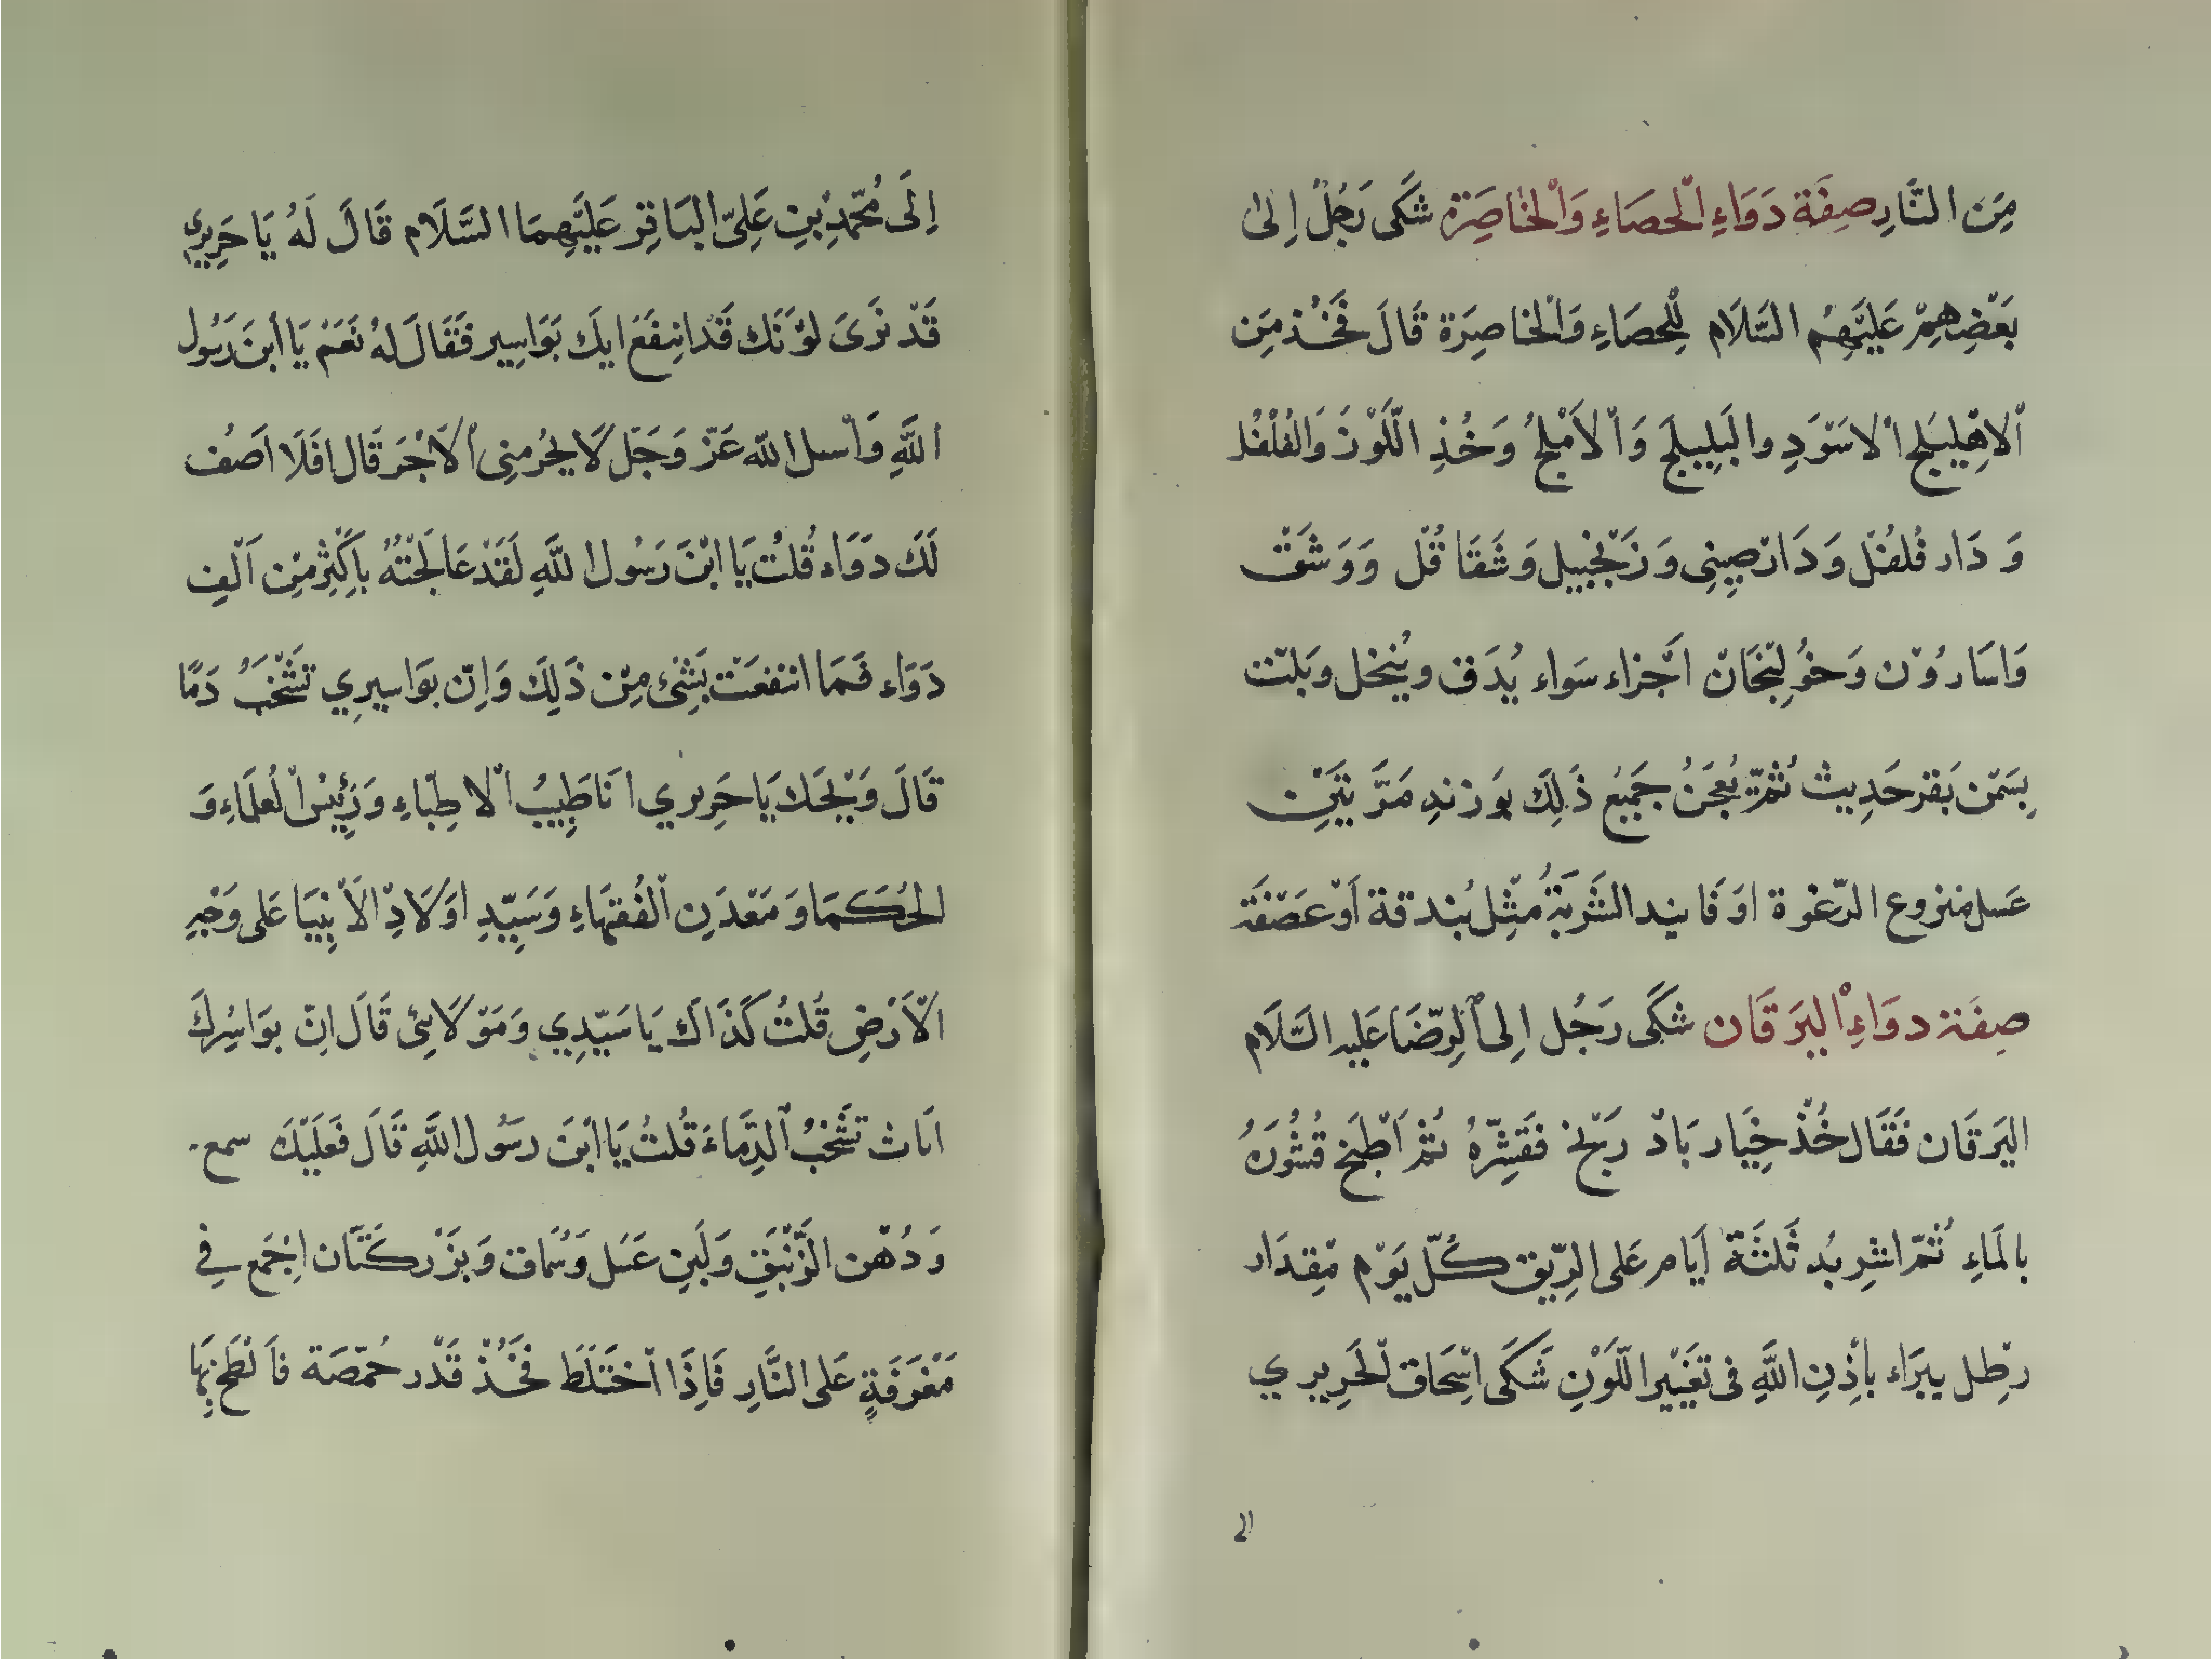 مِنَ النَّارِ صِفَة دَوَاءِ الْحصَاءِ وَالْخَاصِرَة شَكَى رَجُلٌ اِلىٰ
بَعْضِهِمْ عَلَيْهِمُ السَّلَام لِلْحِصَاءِ وَالْخَاصِرَة قَالَ فَخُذ مِن
الْاهْلِيلَج الْاسْوَدِ والْبَلِيلَج وَالْاَمْلَجُ وَخُذِ اللَّوْزَ وَالفُلْفُل
وَ دَار فُلفُل وَ دَارْصِينِى وَ زَنْجَبِيل وَ شَقَاقُل وَ وَشَقّ
وَاسَارُوْن وَخُولِنْجَانْ اَجْزَاء سَواء يُدَقّ ويُنخل ويلتّ
بِسَمْن بَقَر حَدِيث ثُمَّ يُعجَنُ جَمِيعُ ذَلِكَ بوَزنِهِ مَرَّتَيْنِ
عَسل مَنزوع الرّغْوة اوْ فَانيد الشَّربَةُ مِثْل بُندقة اَوْ عَصْفَة
صِفَة دوَاءِ الْيَرَقَان شَكَى رَجُل اِلى الرِّضَا عَليه السَّلَام
اليَرقَان فَقَال خُذْ خِيَار بَادْرَنْج فَقَشِّرْهُ ثُمّ اَطْبَخ قُشُورَهُ
بالمَاءِ ثُمّ اشْرِبْهُ ثَلثَةَ اَيام عَلى الرِّيق كُلّ يَوْم مِقدَار
رطِل يبرَاء بأِذِنِ اللَّهِ فى تَغَيّير اللَّوْنِ شَكَى اسْحَاق الْحَرِيرِي
الى
اِلَى مُحَمّدِ بْنِ عَلِيّ البَاقِرِ عَلَيْهِمَا السَّلَام قَالَ لَهُ يَا حَرِيرِي
قَدْ نَرَىَ لوْنَك قَدْ انتفَعَ ابِكَ بَوَاسِير فَقَالَ لهُ نَعَمْ يَا ابنَ رَسُول
اللَّهِ وَاْسل اللّه عَزّ وَجَلّ لَا يحْرُمنِى الْاَجْرَ قَالَ افَلَا اَصُف
لَكَ دَوَاء قُلتُ يَا ابْنَ رَسُول اللَّهِ لَقَدْ عَالَجْتُهُ باَكْثِر مِن اَلْفِ
دَوَاء فَمَا انتفعَت بَشِئ مِن ذَلِكَ وَاِنّ بوَاسيرِي تَشْخَبُ دَمًا
قَالَ وَيْحَك يَا حَرِيرِي انَا طَبِيبُ الْاطِبّاءِ وَرَئِيسُ الْعلَمَاءِ وَ
الحُكَمَا وَ مَعْدَنِ الْفُقَهَاءِ وَسَيِّدِ اوْلَادِ الاَنْبِيَا عَلى وَجْهِ
الْاَرْضِ قُلتُ كَذَاك يَا سَيّدِي وَمَوْلَائِى قَالَ اِنّ بوَاسِرُكَ
انَاث تَشْخبُ الدِّمَاءَ قُلتُ يَا ابنَ رسَول اللَّهِ قَالَ فَعَلَيْكَ سمع
وَ دُهْن الزَّنْبَقِ وَلَبنِ عَسَل وَسُمّاق وَبزْر كَتَّان اِجْمَع فِي
مَغْرَفَةٍ عَلى النَّارِ فَاِذَا اخْتَلَطَ فَخُذْ قَدْر حُمّصَة فَاَلْطَخ بِهَا